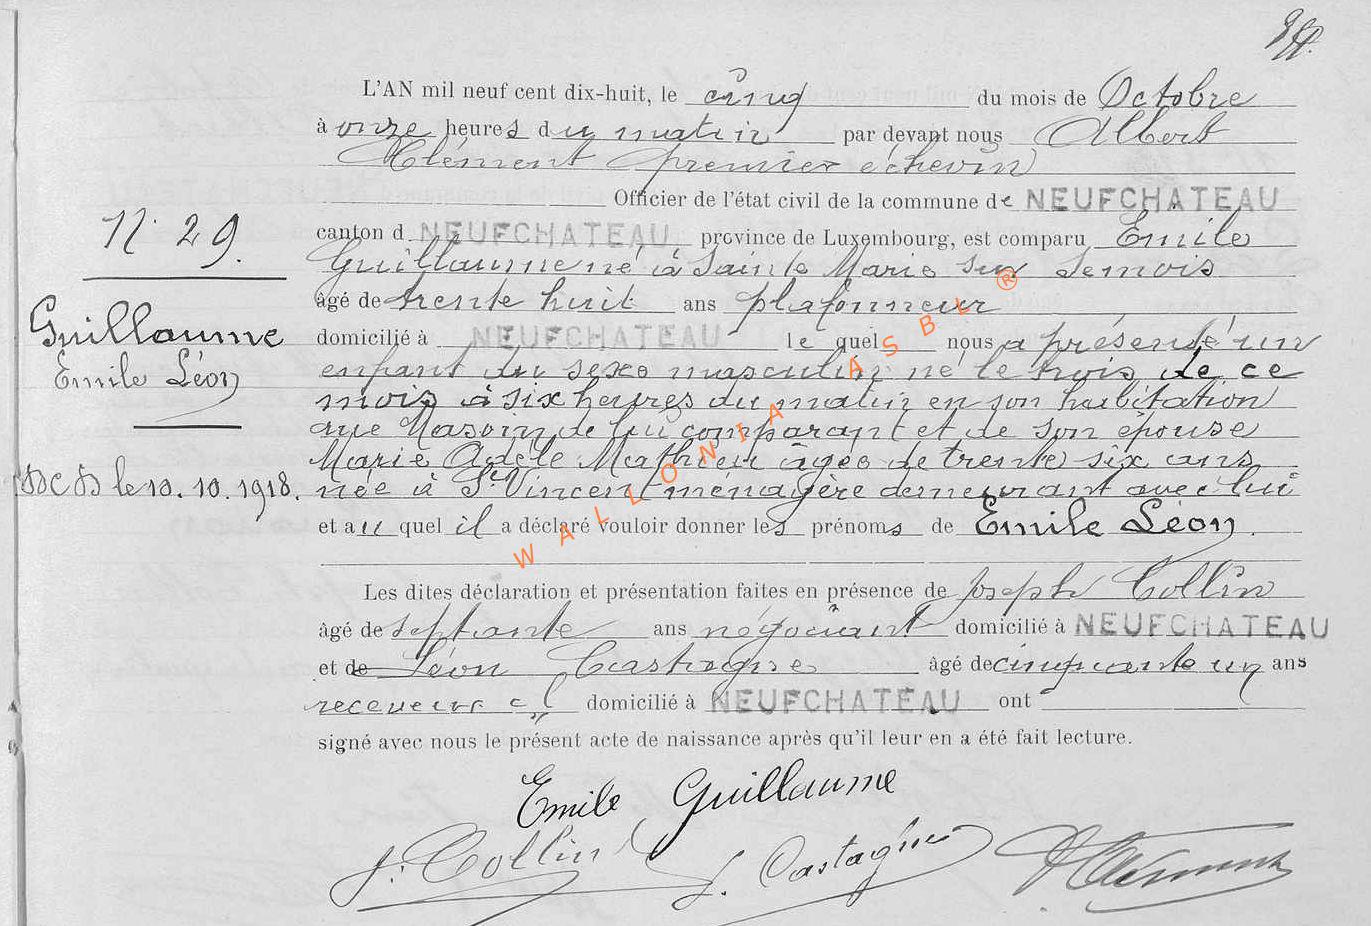 L'AN mil neuf cent dix-huit, le cinq du mois de Octobre
à onze heures du matin par devant nous Albert
Clément premier échevin
Officier de l'état civil de la commune de NEUFCHATEAU
N° 29.
canton d NEUFCHATEAU, province de Luxembourg, est comparu Emile
Guillaume né à Sainte Marie sur Semois
âgé de trente huit ans plafonneur
Guillaume
Emile Léon
domicilié à NEUFCHATEAU le quel nous a présenté un
enfant du sexe masculin né le trois de ce
mois à six heures du matin en son habitation
rue de lui comparant et de son épouse
Marie Adèle Mathieu âgée de trente six ans
DCD le 10.10.1918.
née à St Vincent ménagère demeurant avec lui
et au quel il a déclaré vouloir donner les prénoms de Emile Léon.
Les dites déclaration et présentation faites en présence de Joseph Collin
âgé de septante ans négociant domicilié à NEUFCHATEAU
et de Léon Castagne âgé de cinquante un ans
receveur cl domicilié à NEUFCHATEAU ont
signé avec nous le présent acte de naissance après qu'il leur en a été fait lecture.
Emile Guillaume
J. Collin
Castagne
WALLONIA ASBL ®